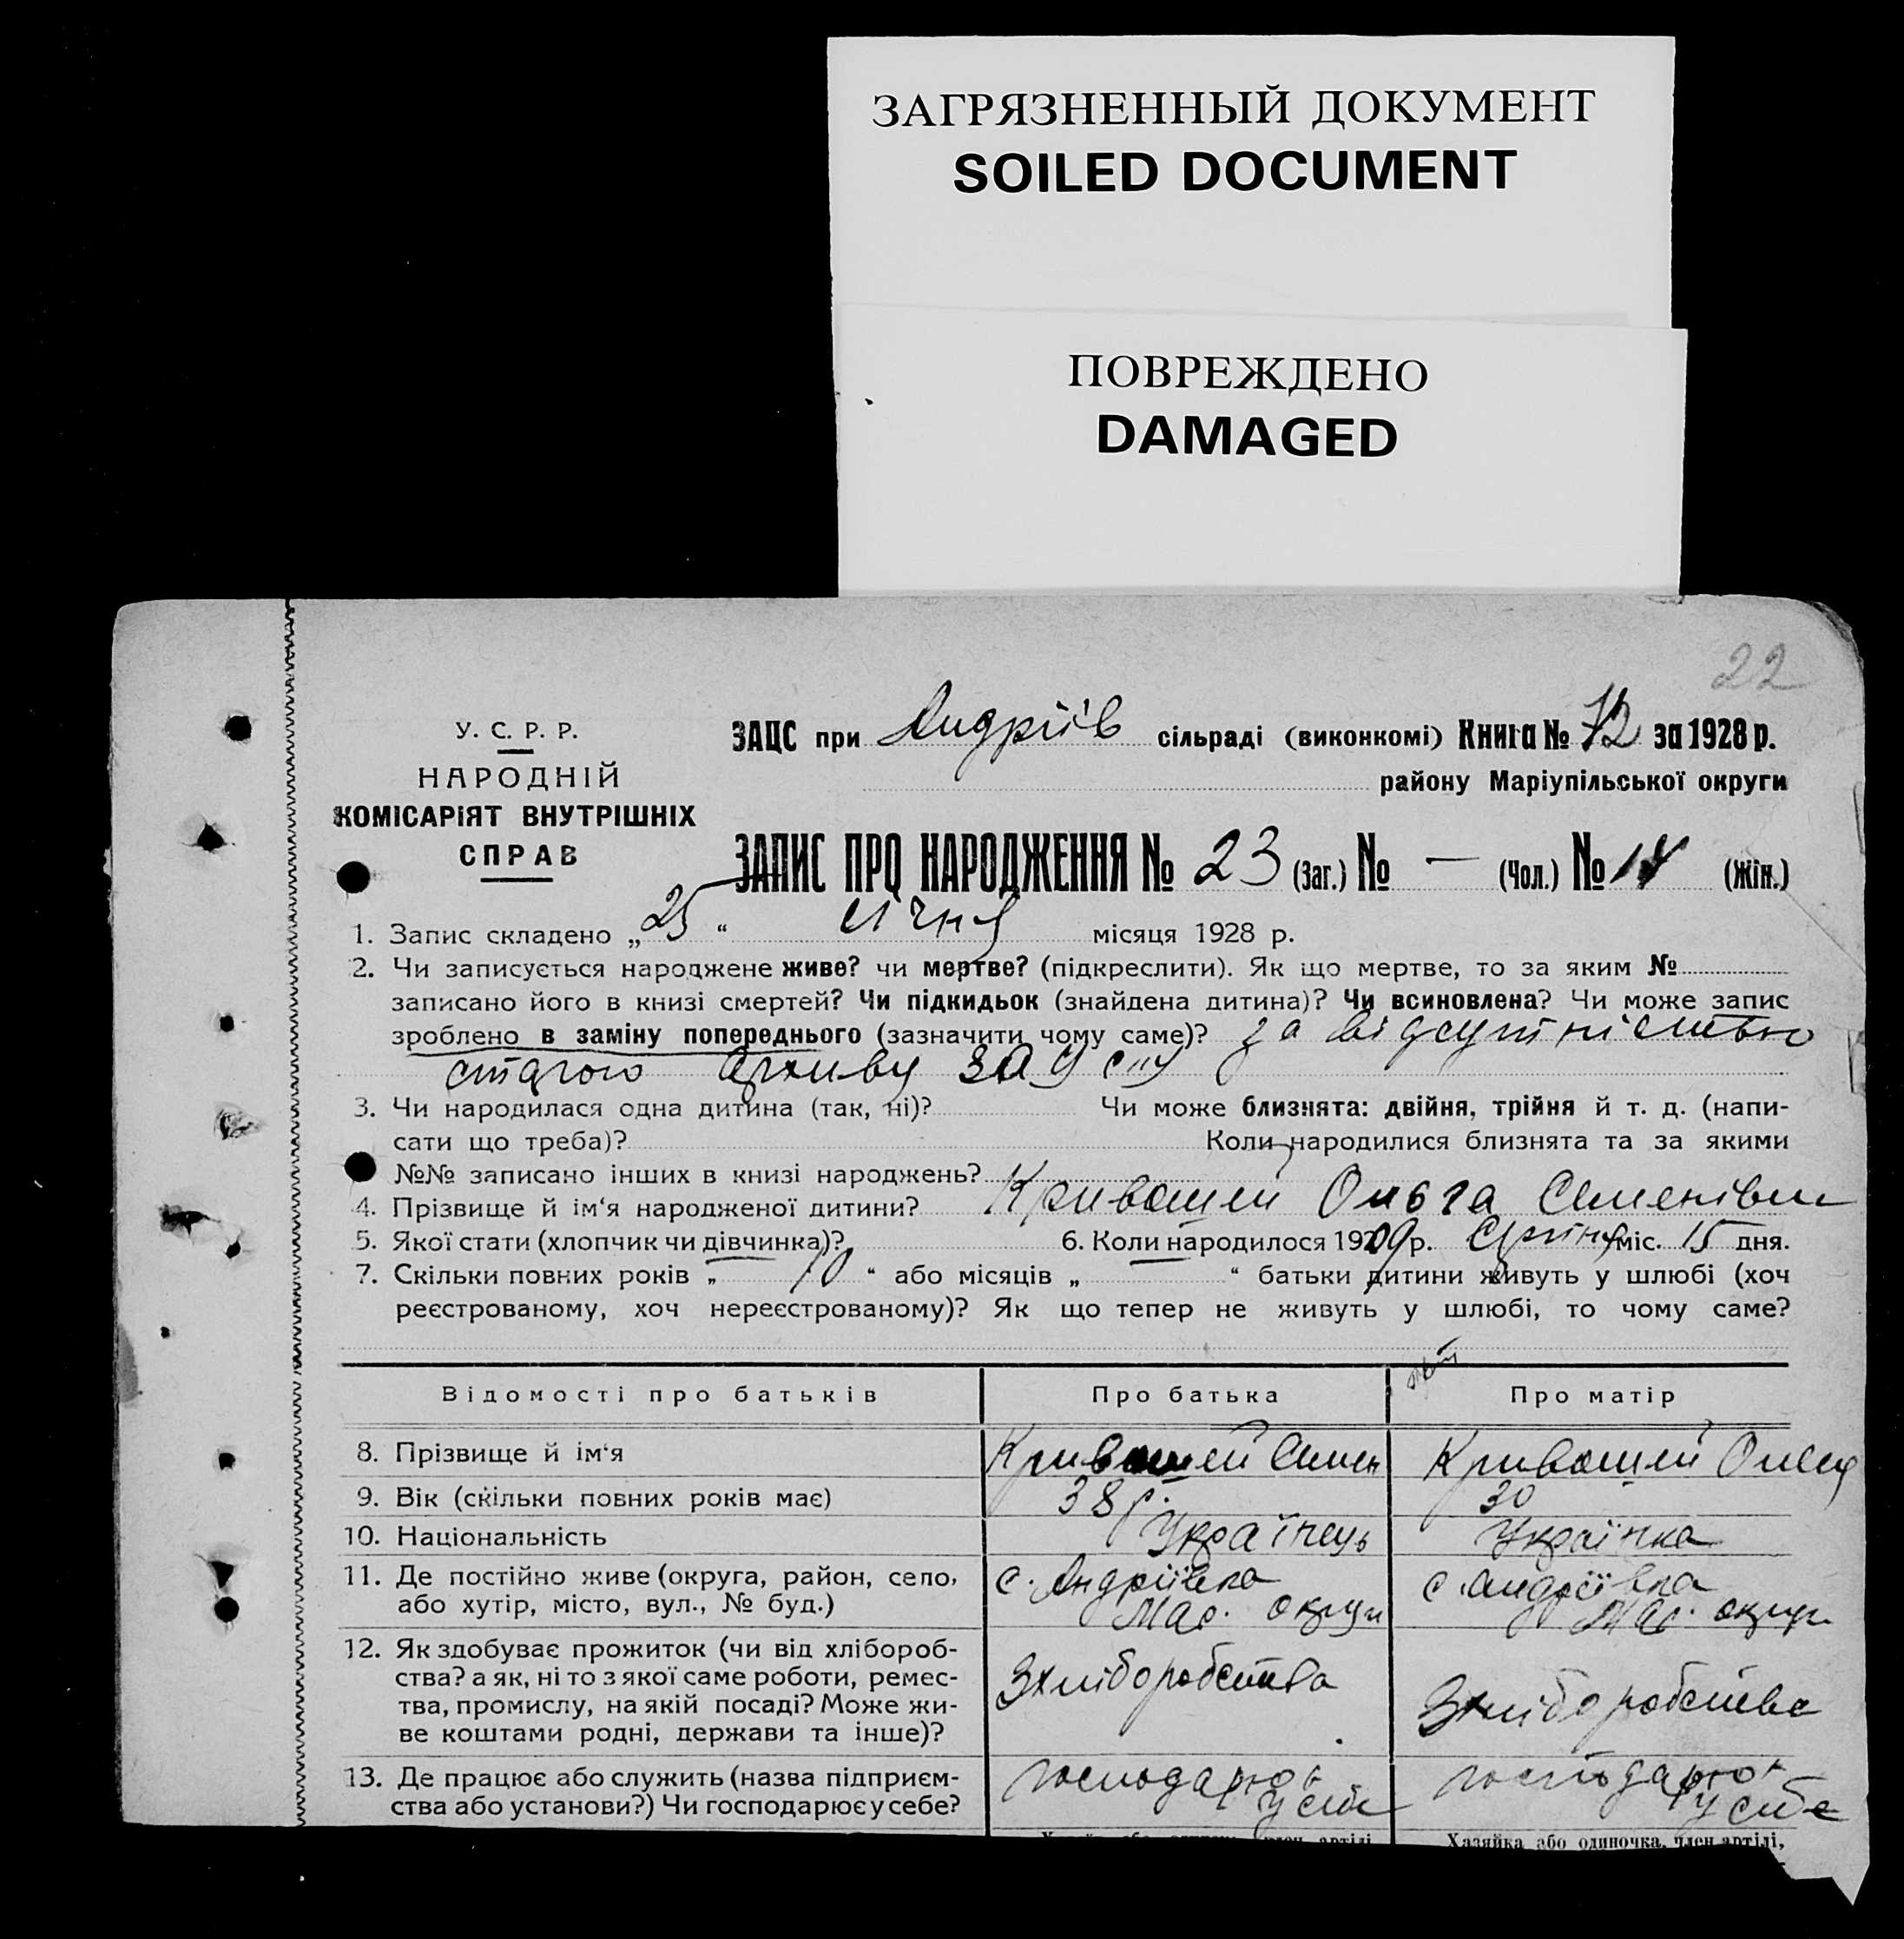 ЗАГРЯЗНЕННЫЙ ДОКУМЕНТ
SOILED DOCUMENT
ПОВРЕЖДЕНО
DAMAGED
22
У. С. Р. Р.
НАРОДНІЙ
КОМІСАРІЯТ ВНУТРІШНІХ
СПРАВ
ЗАЦС при Андріїв сільраді (виконкомі) Книга № 12 за 1928 р.
району Маріупільської округи
ЗАПИС ПРО НАРОДЖЕННЯ № 23 (Заг.) № — (Чол.) № 14 (Жін.)
1. Запис складено „25“ січня місяця 1928 р.
2. Чи записується народжене живе? чи мертве? (підкреслити). Як що мертве, то за яким №
записано його в книзі смертей? Чи підкидьок (знайдена дитина)? Чи всиновлена? Чи може запис
зроблено в заміну попереднього (зазначити чому саме)? за відсутністью
старого архиву
3. Чи народилася одна дитина (так, ні)? Чи може близнята: двійня, трійня й т. д. (напи-
сати що треба)? Коли народилися близнята та за якими
№№ записано інших в книзі народжень?
4. Прізвище й ім‘я народженої дитини? Кривошей Ольга Семенівна
5. Якої стати (хлопчик чи дівчинка)? 6. Коли народилося 19 р. міс. 15 дня.
7. Скільки повних років „ 10 “ або місяців „ “ батьки дитини живуть у шлюбі (хоч
реєстрованому, хоч нереєстрованому)? Як що тепер не живуть у шлюбі, то чому саме?
Відомості про батьків Про батька Про матір
8. Прізвище й ім‘я Кривошей Семен Кривошей
9. Вік (скільки повних років має) 38 р. 30
10. Національність Українець Українка
11. Де постійно живе (округа, район, село, с. Андріївка с. Андріївка
або хутір, місто, вул., № буд.) Мар. округи Мар. округи
12. Як здобуває прожиток (чи від хлібороб-
ства? а як, ні то з якої саме роботи, ремес- З хліборобства З хліборобства
тва, промислу, на якій посаді? Може жи-
ве коштами родні, держави та інше)?
13. Де працює або служить (назва підприєм-
ства або установи?) Чи господарює у себе? у себе у себе
Хазяйка або одиночка, член артілі,